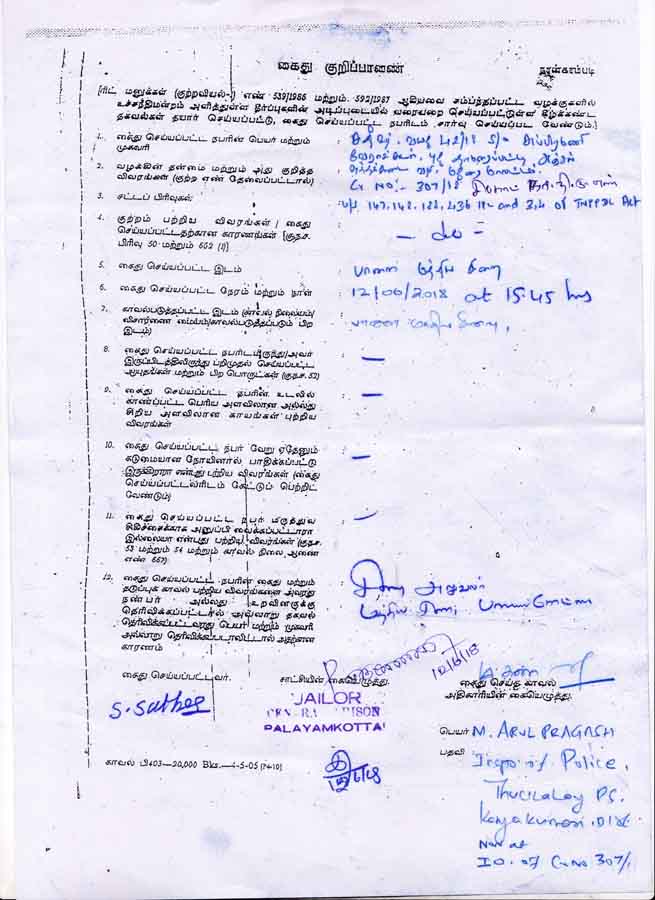 கைது குறிப்பாணை
நான்காம்படி
[ரிட் மனுக்கள் (குற்றவியல்-) எண் 539/1986 மற்றும் 592/1987 ஆகியவை சம்பந்தப்பட்ட வழக்குகளில்
உச்சநீதிமன்றம் அளித்துள்ள தீர்ப்புகளின் அடிப்படையில் வரையறை செய்யப்பட்டுள்ள கீழ்க்கண்ட
தகவல்கள் தயார் செய்யப்பட்டு, கைது செய்யப்பட்ட நபரிடம் சார்வு செய்யப்பட வேண்டும்.]
1. கைது செய்யப்பட்ட நபரின் பெயர் மற்றும் : வயது 42/18 S/o
முகவரி
2. வழக்கின் தன்மை மற்றும் அது குறித்த
விவரங்கள் (குற்ற எண் தேவைப்பட்டால்) : Cr NO:- 307/18
3. சட்டப் பிரிவுகள் : u/s 147, 148, 188, 436 IPC and 3, 4 of TNPPDL Act
4. குற்றம் பற்றிய விவரங்கள் / கைது
செய்யப்பட்டதற்கான காரணங்கள் [கு.ந.ச. : — do —
பிரிவு 50 மற்றும் 552 (1)]
5. கைது செய்யப்பட்ட இடம் : பாளை மத்திய சிறை
6. கைது செய்யப்பட்ட நேரம் மற்றும் நாள் : 12/06/2018 at 15.45 hrs
7. காவல்படுத்தப்பட்ட இடம் (காவல் நிலையம்/ : பாளை மத்திய சிறை,
விசாரணை மையம்/காவல்படுத்தப்படும் பிற
இடம்)
8. கைது செய்யப்பட்ட நபரிடமிருந்து/அவர் : —
இருப்பிடத்திலிருந்து பறிமுதல் செய்யப்பட்ட
ஆயுதங்கள் மற்றும் பிற பொருட்கள் (கு.ந.ச. 52)
9. கைது செய்யப்பட்ட நபரின் உடலில் : —
காணப்பட்ட பெரிய அளவிலான அல்லது
சிறிய அளவிலான காயங்கள் பற்றிய
விவரங்கள்
10. கைது செய்யப்பட்ட நபர் வேறு ஏதேனும் : —
கடுமையான நோயினால் பாதிக்கப்பட்டு
இருக்கிறாரா என்பது பற்றிய விவரங்கள் (கைது
செய்யப்பட்டவரிடம் கேட்டுப் பெற்றிட
வேண்டும்)
11. கைது செய்யப்பட்ட நபர் மருத்துவ : —
சிகிச்சைக்காக அனுப்பி வைக்கப்பட்டாரா
இல்லையா என்பது பற்றிய விவரங்கள் (கு.ந.ச.
53 மற்றும் 54 மற்றும் காவல் நிலை ஆணை
எண் 657)
12. கைது செய்யப்பட்ட நபரின் கைது மற்றும் : சிறை அலுவலர்
தடுப்புக் காவல் பற்றிய விவரங்களை அவரது மத்திய சிறை, பாளையங்கோட்டை
நண்பர் அல்லது உறவினருக்கு
தெரிவிக்கப்பட்டால் அவ்வாறு தகவல்
தெரிவிக்கப்பட்டவரது பெயர் மற்றும் முகவரி
அவ்வாறு தெரிவிக்கப்படாவிட்டால் அதற்கான
காரணம்
12/6/18
கைது செய்யப்பட்டவர். சாட்சியின் கையெழுத்து. கைது செய்த காவல்
அதிகாரியின் கையெழுத்து.
JAILOR
CENTRAL PRISON
PALAYAMKOTTAI
பெயர் M. ARUL PRAGASH
பதவி Inspr of Police,
PS.
Kanyakumari Dist
Now at
I.O. of Cr No 307/
காவல் பி403—20,000 Bks.—4-5-05 (74-10)